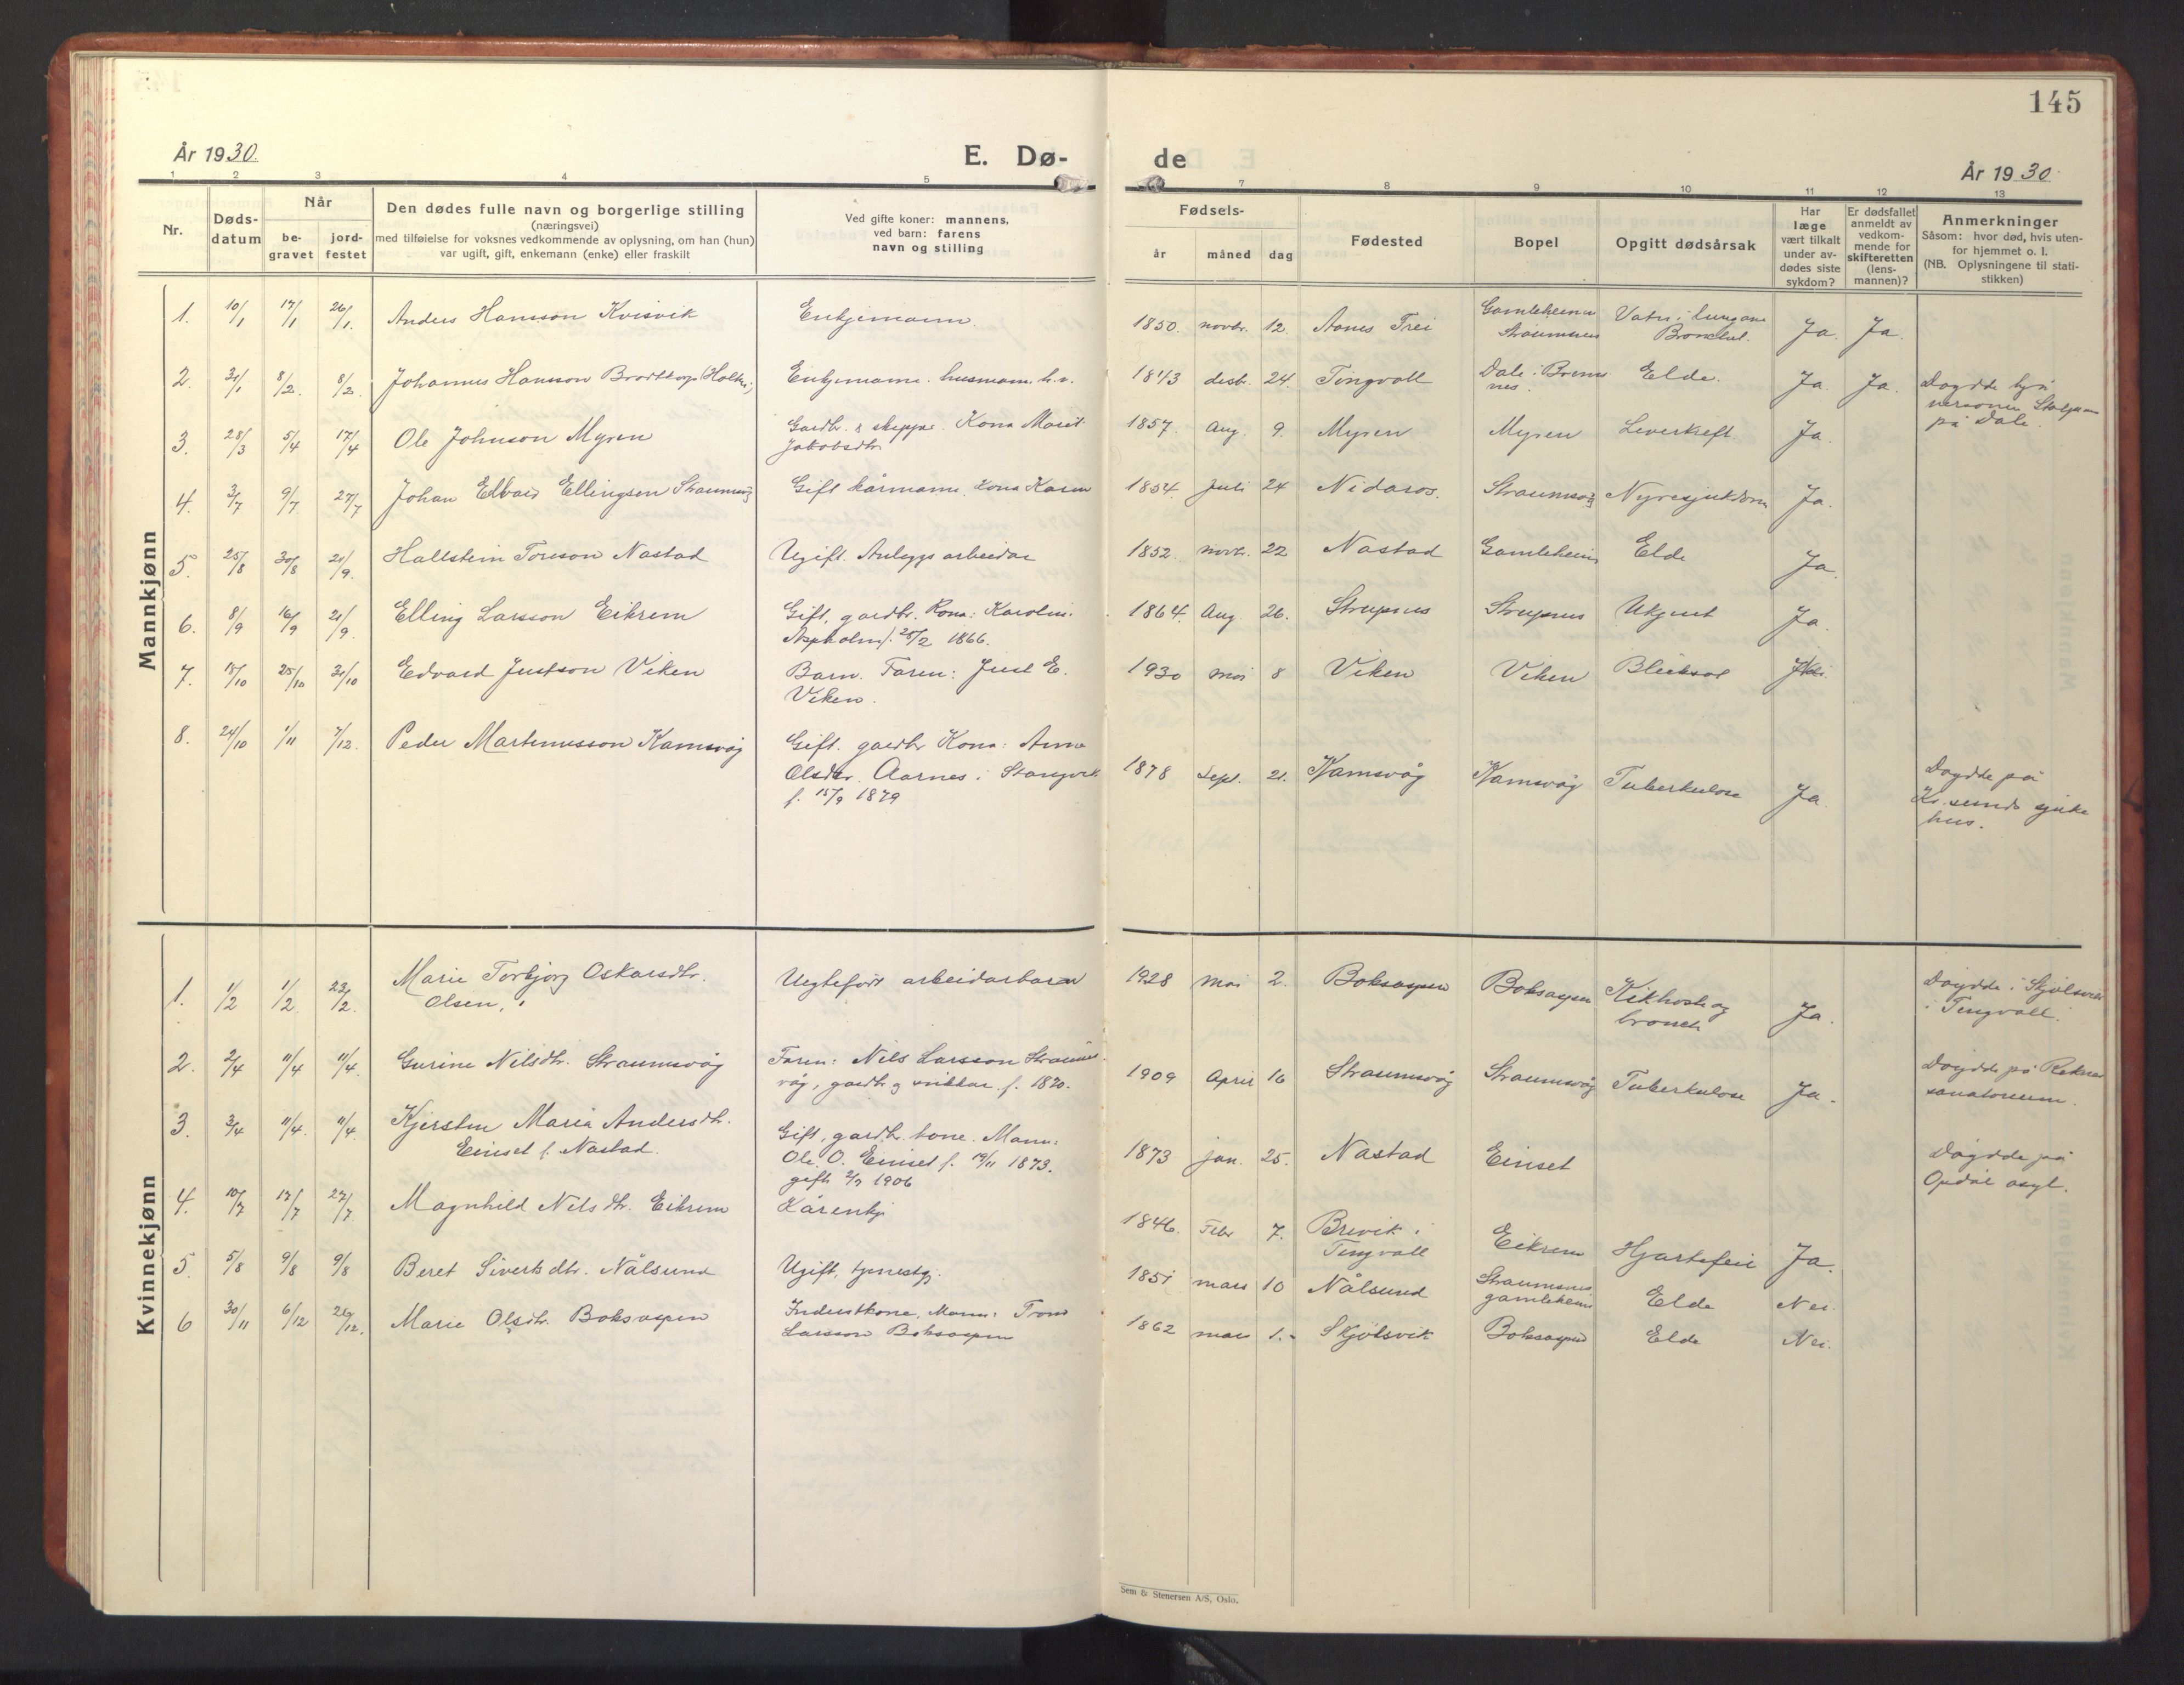 145
År 1930.
E. Dø-
de
År 1930.
1 2 3 4 5 7 8 9 10 11 12 13
Nr.
Døds-
datum
Når
be-
gravet
jord-
festet
Den dødes fulle navn og borgerlige stilling
(næringsvei)
med tilføielse for voksnes vedkommende av oplysning, om han (hun)
var ugift, gift, enkemann (enke) eller fraskilt
Ved gifte koner: mannens,
ved barn: farens
navn og stilling
Fødsels-
år måned dag
Fødested
Bopel
Opgitt dødsårsak
Har
læge
vært tilkalt
under av-
dødes siste
sykdom?
Er dødsfallet
anmeldt av
vedkom-
mende for
skifteretten
(lens-
mannen)?
Anmerkninger
Såsom: hvor død, hvis uten-
for hjemmet o. l.
(NB. Oplysningene til stati-
stikken)
Mannkjønn
1. 10/1 17/1 26/1. Anders Hansson Kvisvik Enkjemann. 1850. novbr. 12. Aanes Trei Gamleheimen Vatn i lungane Ja. Ja.
Straumsnes
2. 31/1 8/2. 8/2. Johannes Hansson Enkjemann. husmann. 1843 desb. 24. Tingvoll Dale i Brems Elde. Ja. Ja. Døydde hjå
nes.
på Dale.
3. 28/3 5/4 17/4 Ole Johnson Myren Gardbr. & skeppar. Kona Marit 1857. Aug. 9. Myren Myren Leverkreft. Ja.
Jakobsdtr.
4. 3/7 9/7 27/7 Johan Edvard Ellingsen Straumsvåg Gift kårmann. Kona Karen 1854. Juli 24 Nidaros. Straumsvåg Nyresjukdom Ja.
5. 25/8 30/8 21/9. Hallstein Toreson Nastad Ugift. Anleggsarbeidar 1852. novbr. 22 Nastad Gamleheim Elde Ja.
6. 8/9 16/9 21/9. Elling Larsson Eikrem Gift, gardbr. Kona: Karolin. 1864. Aug. 26. Strupnes Strupnes Ukjent Ja.
Aspholm f. 28/2 1866.
7. 15/10 25/10 31/10 Edvard Justson Viken Barn. Faren: Just E. 1930 mai 8 Viken Viken
Viken.
8. 24/10 1/11 7/12. Peder Martinusson Kamsvåg Gift. gardbr Kona: Anna 1878 Sept. 21. Kamsvåg Kamsvåg Tuberkulose Ja. Døydde på
Olsdtr. Aarnes i Stangvik Kr.sunds sjuke
f. 15/9 1879 hus.
Kvinnekjønn
1. 1/2 1/2. 23/2. Marie Torbjørg Oskarsdtr. Uegtefødt arbeidarbarn 1928 mai 2. Boksaspen Boksaspen Kikhoste og Ja. Døydde i Skjølsvik
Olsen, bronch i Tingvoll.
2. 2/4 11/4 11/4. Gurine Nilsdtr. Straumsvåg Faren: Nils Larsson Straums- 1909 April 16 Straumsvåg Straumsvåg Tuberkulose Ja. Døydde på Reknes
våg, gardbr. og snikkar f. 1870. sanatorium.
3. 3/4 11/4. 11/4. Kjersten Maria Andersdtr. Gift, gardbr. kone. Mann: 1873 jan. 25. Nastad Einset Døydde på
Einset f. Nastad. Ole O. Einset f. 19/11 1873. Opdøl asyl.
gift 2/7 1906
4. 10/7 17/7 27/7 Magnhild Nilsdtr. Eikrem Kårenkje 1846. Febr 7. Brevik i Eikrem Hjartefeil Ja.
Tingvoll
5. 5/8 9/8 9/8 Beret Sivertsdtr. Nålsund Ugift, tjenestg. 1851 mars 10 Nålsund Straumsnes Elde Nei.
gamleheim
6 30/11 6/12 26/12. Marie Olsdtr. Boksaspen Inderstkone. Mann: Trond 1862 mars 1. Skjølsvik Boksaspen Elde Nei.
Larsson Boksaspen
Sem & Stenersen A/S, Oslo.